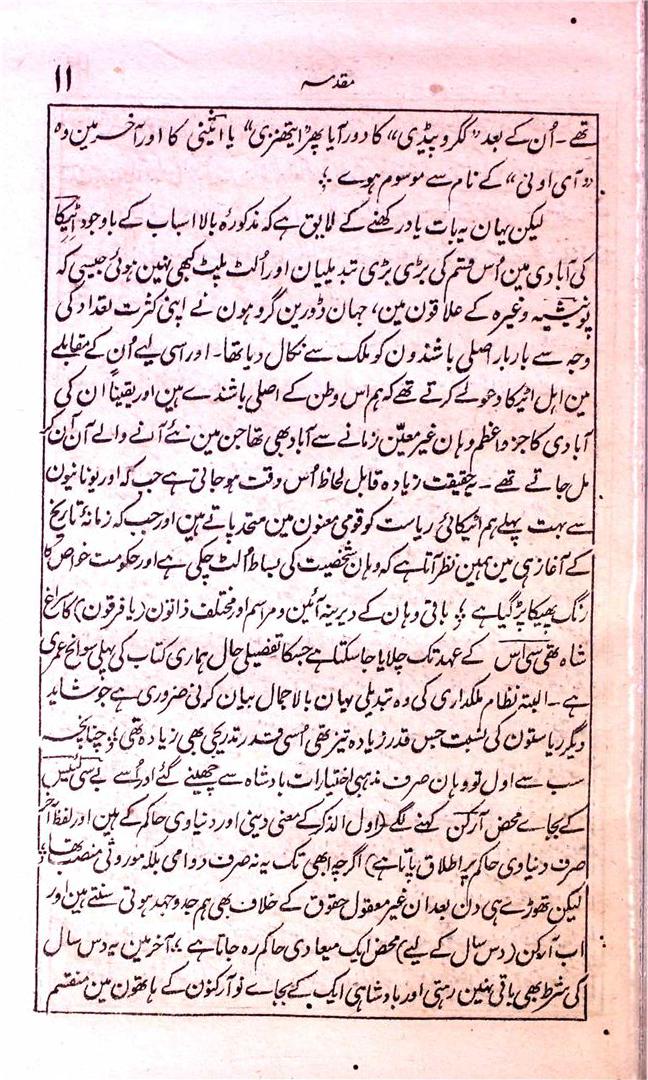 مقدمہ ۱۱
تھے۔ اُن کے بعد ”ککروپیڈی“ کا دور آیا پھر ”ایتھنزی“ یا اثینی کا اور آخر مین وہ
”آی اونی“ کے نام سے موسوم ہوے ؛
لیکن یہان یہ بات یاد رکھنے کے لایق ہے کہ مذکورۂ بالا اسباب کے باوجود اٹیکا
کی آبادی مین اُس قسم کی بڑی بڑی تبدیلیان اور اُلٹ پلٹ کبھی نہین ہوئی جیسی کہ
بوشیہ وغیرہ کے علاقون مین، جہان ڈورین گروہون نے اپنی کثرت تعداد کی
وجہ سے بار بار اصلی باشندون کو ملک سے نکال دیا تھا۔ اور اسی لیے اُن کے مقابلے
مین اہل اٹیکا دعوے کرتے تھے کہ ہم اس وطن کے اصلی باشندے ہین اور یقیناً ان کی
آبادی کا جزو اعظم وہان غیر معیّن زمانے سے آباد بھی تھا جن مین نئے آنے والے آن آن کر
مل جاتے تھے۔ یہ حقیقت زیادہ قابل لحاظ اُس وقت ہو جاتی ہے جب کہ اور یونانیون
سے بہت پہلے ہم اٹیکائی ریاست کو قومی معنون مین متحد پاتے ہین اور جب کہ زمانۂ تاریخ
کے آغاز ہی مین ہمین نظر آتا ہے کہ وہان شخصیت کی بساط اُلٹ چکی ہے اور حکومت خواص کا
رنگ پھیکا پڑ گیا ہے ؛ باقی وہان کے دیرینہ آئین و مراسم اور مختلف ذاتون (یا فرقون) کا سراغ
شاہ تھی سی اس کے عہد تک چلایا جا سکتا ہے جسکا تفصیلی حال ہماری کتاب کی پہلی سوانح عمری
ہے۔ البتہ نظام ملکداری کی وہ تبدیلی یہان بالاجمال بیان کرنی ضروری ہے جو شاید
دیگر ریاستون کی نسبت جس قدر زیادہ تیز تھی اُسی قدر تدریجی بھی زیادہ تھی ؛ چنانچہ
سب سے اول تو وہان صرف مذہبی اختیارات بادشاہ سے چھینے گئے اور اُسے بے سی لیس
کے بجاے محض آرکن کہنے لگے (اول الذکر کے معنی دینی اور دنیاوی حاکم کے ہین اور لفظ آخر
صرف دنیاوی حاکم پر اطلاق پاتا ہے) اگرچہ ابھی تک یہ نہ صرف دوامی بلکہ موروثی منصب تھا،
لیکن تھوڑے ہی دن بعد ان غیر معقول حقوق کے خلاف بھی ہم جدوجہد ہوتی سنتے ہین اور
اب آرکن (دس سال کے لیے) محض ایک میعادی حاکم رہ جاتا ہے ؛ آخر مین یہ دس سال
کی شرط بھی باقی نہین رہتی اور بادشاہی ایک کے بجاے نو آرکنون کے ہاتھون مین منقسم